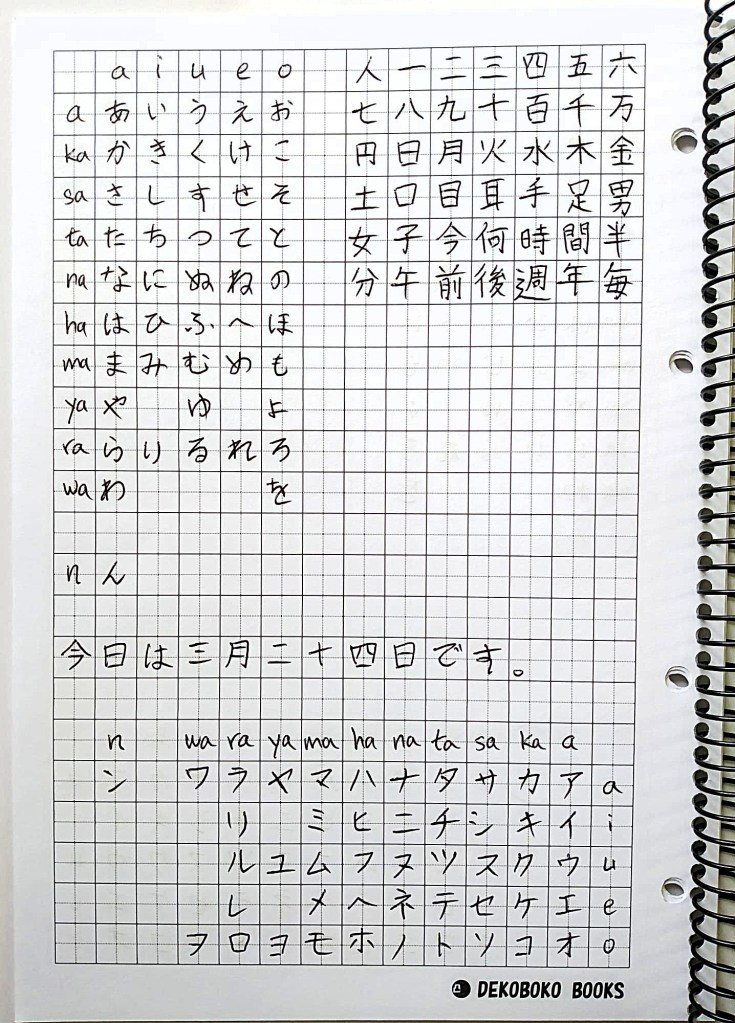 a i u e o 人 一 二 三 四 五 六
a あ い う え お 七 八 九 十 百 千 万
ka か き く け こ 円 日 月 火 水 木 金
sa さ し す せ そ 土 口 目 耳 手 足 男
ta た ち つ て と 女 子 今 何 時 間 半
na な に ぬ ね の 分 午 前 後 週 年 毎
ha は ひ ふ へ ほ
ma ま み む め も
ya や ゆ よ
ra ら り る れ ろ
wa わ を
n ん
今日は三月二十四日です。
n wa ra ya ma ha na ta sa ka a
ン ワ ラ ヤ マ ハ ナ タ サ カ ア a
リ ミ ヒ ニ チ シ キ イ i
ル ユ ム フ ヌ ツ ス ク ウ u
レ メ ヘ ネ テ セ ケ エ e
ヲ ロ ヨ モ ホ ノ ト ソ コ オ o
DEKOBOKO BOOKS